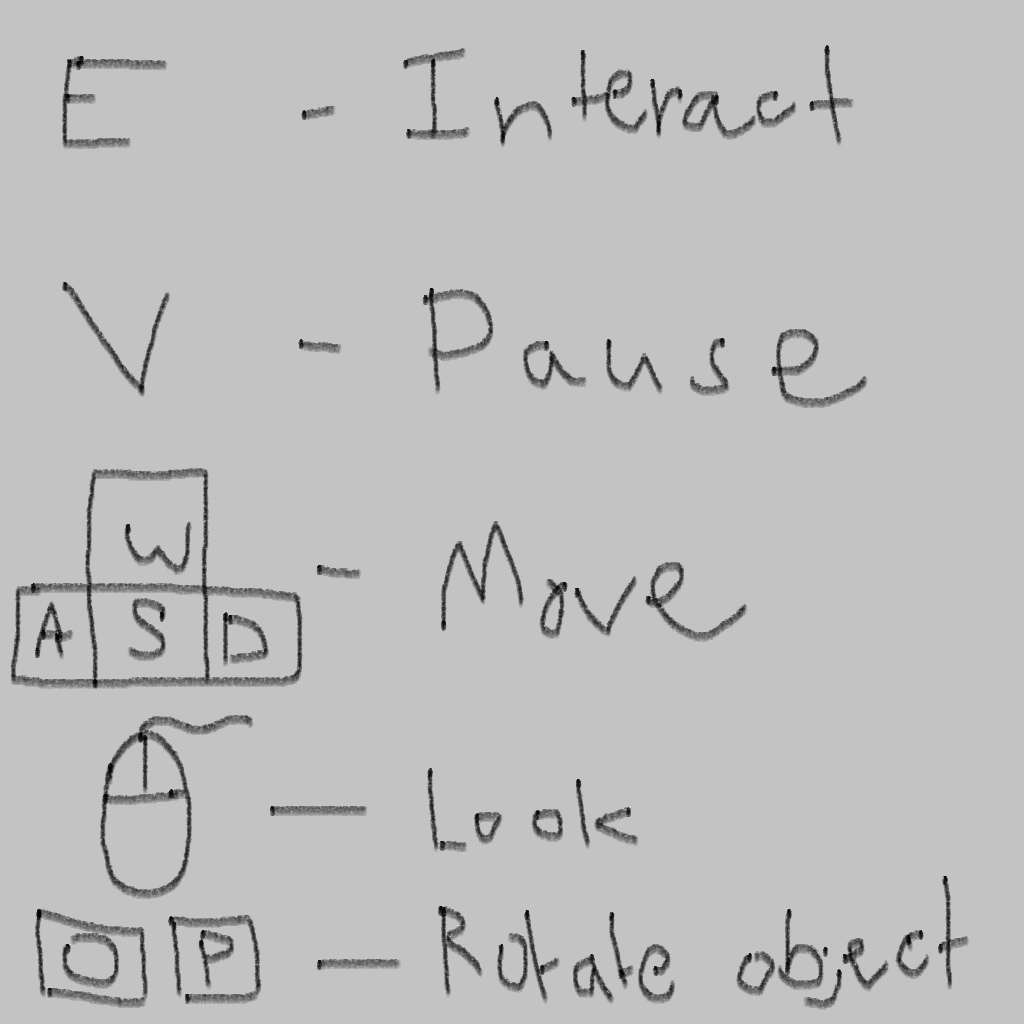 E - Interact
V - Pause
W
A S D - Move
— Look
O P — Rotate object